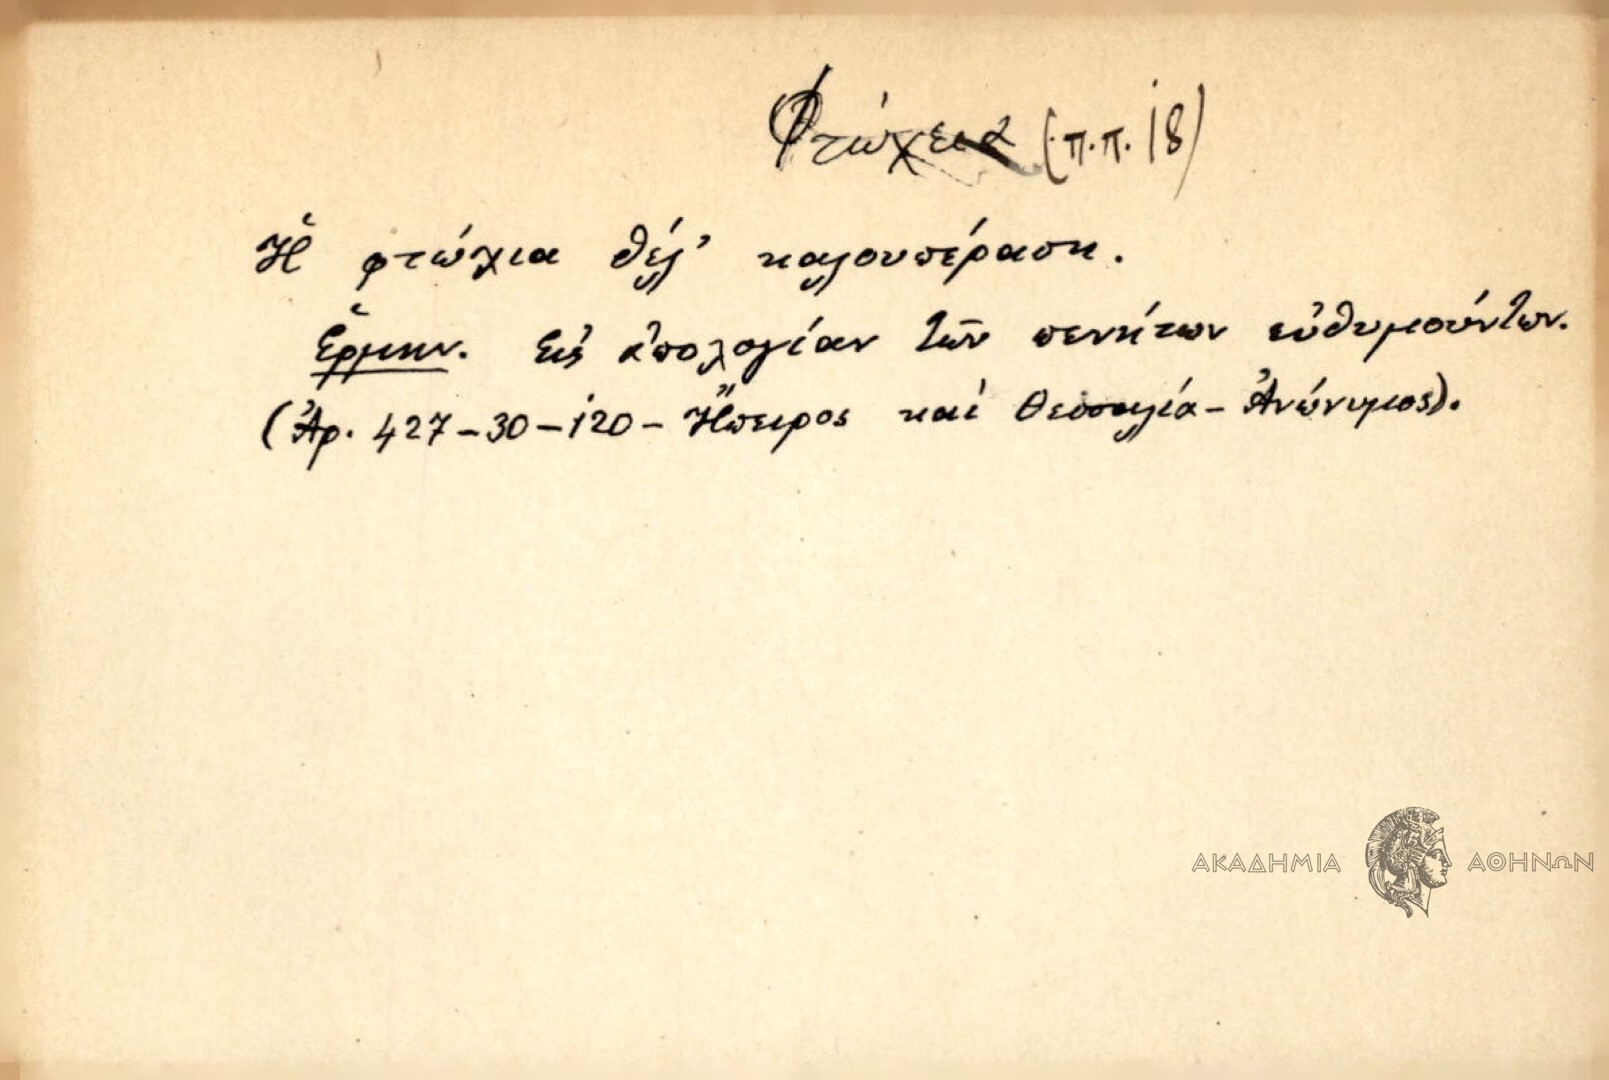 Φτώχεια (π.π. 18)
Ἡ φτώχια θέλ' καλουπέραση.
Ἑρμην. Εἰς ἀπολογίαν τῶν πενήτων εὐθυμούντων.
(Ἀρ. 427-30-120- Ἤπειρος καὶ Θεσσαλία - Ἀνώνυμος).
ΑΚΑΔΗΜΙΑ ΑΘΗΝΩΝ